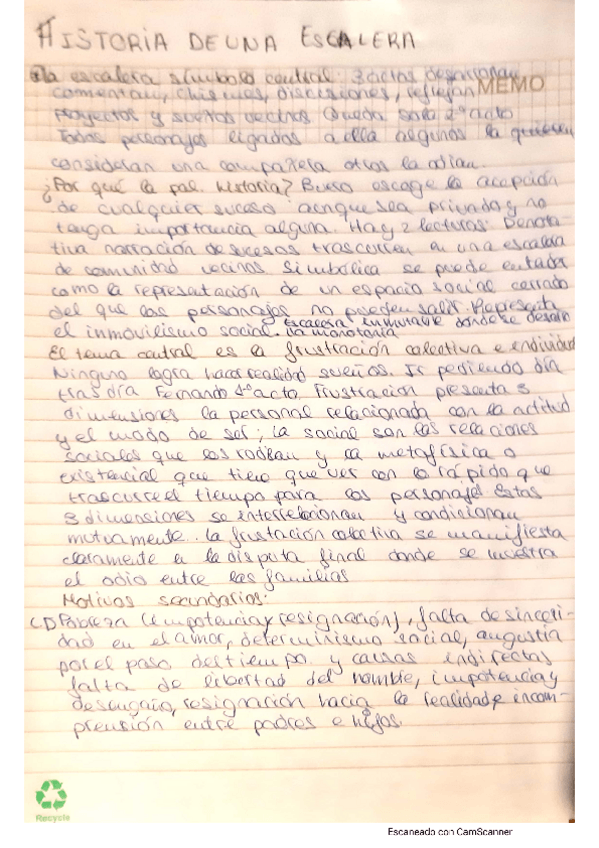 HISTORIA DE UNA ESCALERA
la escalera símbolo central: 3 actos
MEMO
comentan, chismes, discusiones, reflejan
Proyectos y sueños vecinos Queda sola 2º acto
Todos personajes ligados a ella algunos la quieren
consideran una compañera otros la odian.
¿Por qué la pal. historia? Buero escoge la acepción
de cualquier suceso aunque sea privado y no
tenga importancia alguna. Hay 2 lecturas: Denota-
tiva narración de sucesos trascurren en una escalera
de comunidad vecinos Simbólica se puede
como la representación de un espacio social cerrado
del que los personajes no pueden salir. Representa
el inmovilismo social. Escalera inmutable donde se
la monotonía
El tema central es la frustración colectiva e
Ninguno logra hacer realidad sueños. Ir perdiendo día
tras día Fernando acto. Frustración presenta 3
dimensiones la personal relacionada con la actitud
y el modo de ser; la social son las relaciones
sociales que los rodean y la metafísica o
existencial que tiene que ver con lo rápido que
trascurre el tiempo para los personajes Estas
3 dimensiones se interrelacionan y condicionan
mutuamente. La frustación colectiva se manifiesta
claramente en la disputa final donde se muestra
el odio entre las familias
Motivos secundarios:
Pobreza (impotencia y resignación), falta de sinceri-
dad en el amor, determinismo social, angustia
por el paso del tiempo y causas indirectas
falta de libertad del hombre, impotencia y
desengaño, resignación hacia la realidad e incom-
prensión entre padres e hijos.
Recycle
Escaneado con CamScanner